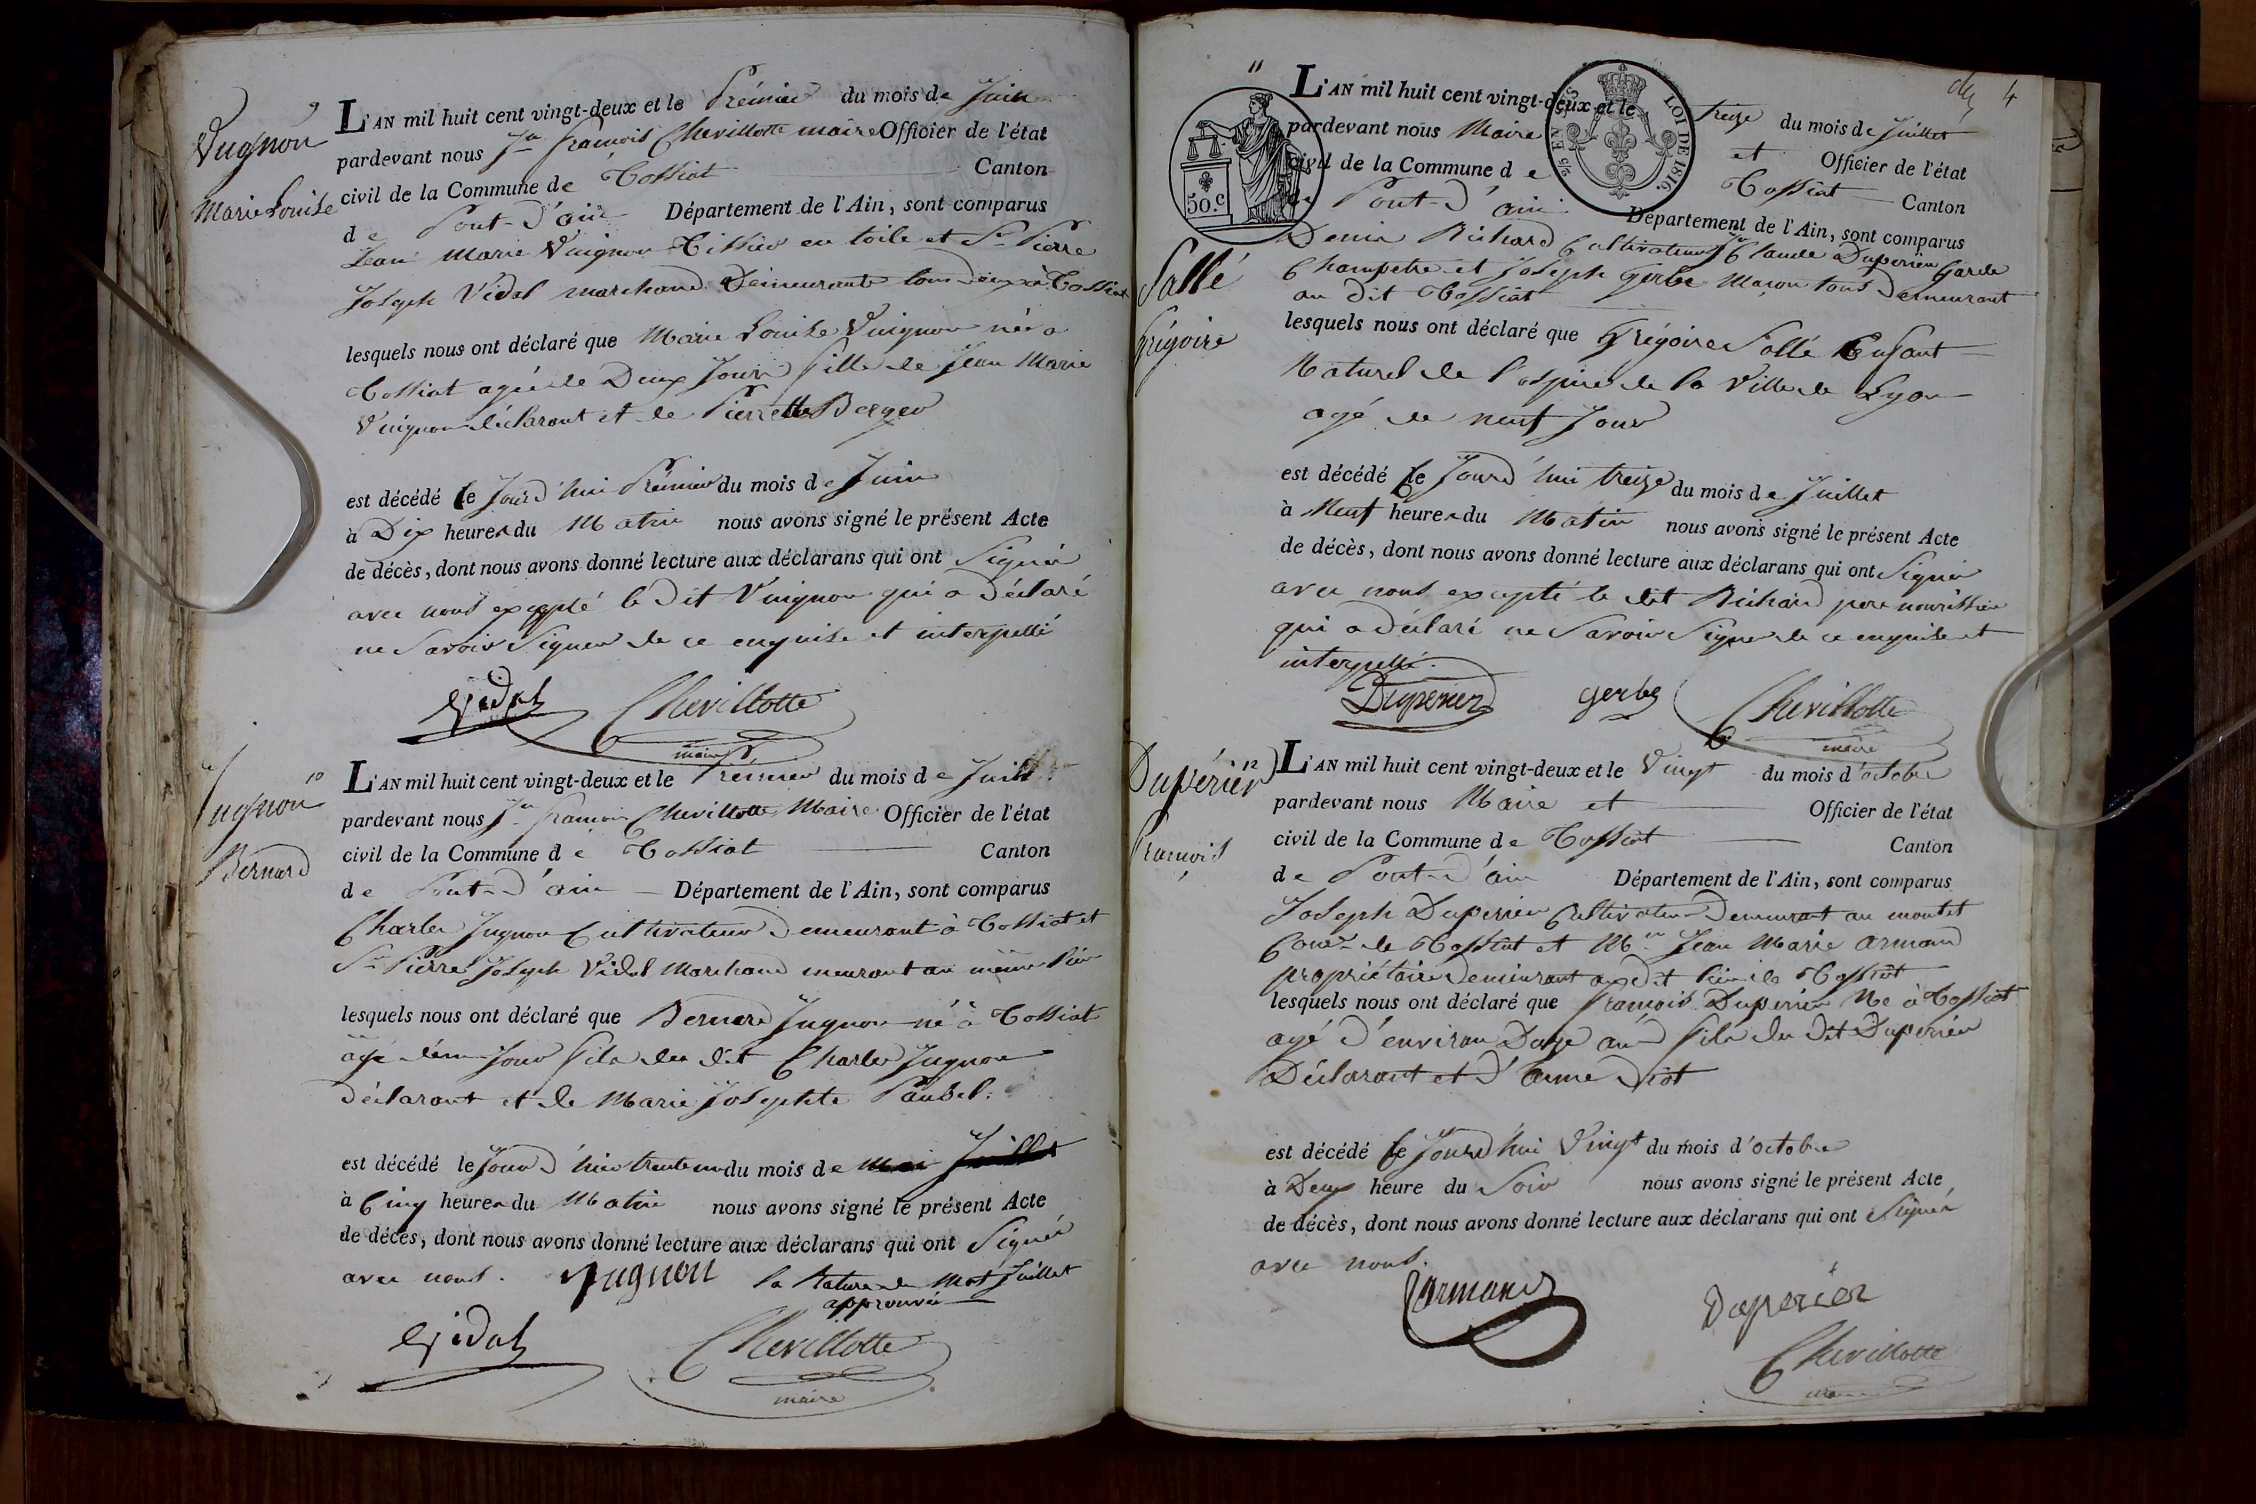 9
Vugnon
Marie Louise
L'AN mil huit cent vingt-deux et le Prémier du mois de Juin
pardevant nous Jn françois Chevillotte maire Officier de l'état
civil de la Commune de Tossiat Canton
de Pont-d'ain Département de l'Ain, sont comparus
Jean Marie Vuignon Tissier en toile et Sr Pierre
Joseph Vidal marchand Demeurants tous deux à Tossiat
lesquels nous ont déclaré que Marie Louise Vuignon née a
Tossiat agée de Deux Jours fille de Jean Marie
Vuignon déclarant et de Pierrette Berger
est décédé le Jourd'hui Prémier du mois de Juin
à Dix heures du Matin nous avons signé le présent Acte
de décès, dont nous avons donné lecture aux déclarans qui ont Signés
avec nous excepté le Dit Vuignon qui a déclaré
ne Savoir Signer de ce enquise et interpellé
Vidal Chevillotte
maire
10
Jugnon
Bernard
L'AN mil huit cent vingt-deux et le Prémier du mois de Juin
pardevant nous Jn françois Chevillotte Maire Officier de l'état
civil de la Commune de Tossiat Canton
de Pont-d'ain Département de l'Ain, sont comparus
Charles Jugnon Cultivateur Demeurant à Tossiat et
Sr Pierre Joseph Vidal Marchand meurant au même lieu
lesquels nous ont déclaré que Bernard Jugnon né à Tossiat
agé d'un Jour fils du dit Charles Jugnon
Déclarant et de Marie Josephte
est décédé le Jour d'hier trente un du mois de mai Juillet
à Cinq heures du Matin nous avons signé le présent Acte
de décès, dont nous avons donné lecture aux déclarans qui ont Signés
avec nous. Jugnon la Rature du Mot Juillet
approuvée
Vidal Chevillotte
maire
4
11
50.c
25 EN SUS
LOI DE 1816.
Sallé
Grégoire
L'AN mil huit cent vingt-deux et le treize du mois de Juillet
pardevant nous Maire et Officier de l'état
civil de la Commune de Tossiat Canton
de Pont-d'ain Département de l'Ain, sont comparus
Denis Richard Cultivateur Claude Duperier Garde
Champetre et Joseph Gerbe Maçon tous Demeurant
au dit Tossiat
lesquels nous ont déclaré que Grégoire Sallé Enfant
Naturel de l'ospice de la Ville de Lyon
agé de neuf Jour
est décédé le Jourd'hui treize du mois de Juillet
à Neuf heures du Matin nous avons signé le présent Acte
de décès, dont nous avons donné lecture aux déclarans qui ont Signés
avec nous excepté le dit Richard pere nourissier
qui a déclaré ne Savoir Signer de ce enquise et
interpellé.
Duperier gerbe Chevillotte
maire
12
Dupérier
François
L'AN mil huit cent vingt-deux et le Vingt du mois d'octobre
pardevant nous Maire et Officier de l'état
civil de la Commune de Tossiat Canton
de Pont-d'ain Département de l'Ain, sont comparus
Joseph Duperier Cultivateur Demeurant au montet
Coune de Tossiat et Mr Jean Marie armand
propriétaire demeurant audit lieu de Tossiat
lesquels nous ont déclaré que françois Duperier Né à Tossiat
agé d'environ Douze ans fils du dit Duperier
Déclarant et d'anne Diot
est décédé le Jourd'hui Vingt du mois d'octobre
à Deux heure du Soir nous avons signé le présent Acte
de décès, dont nous avons donné lecture aux déclarans qui ont Signés
avec nous.
armand Duperier
Chevillotte
maire